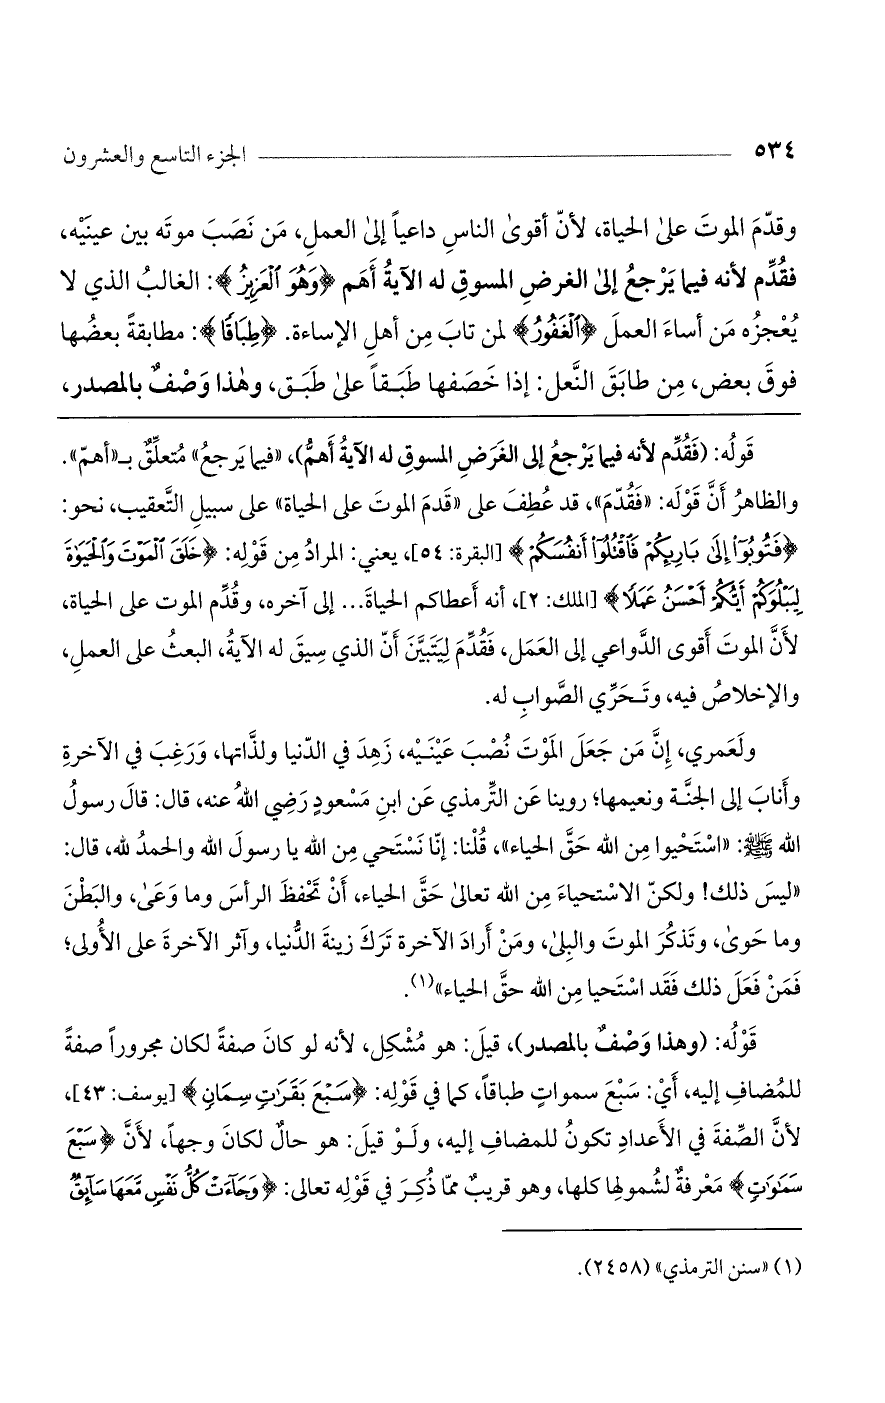 ٥٣٤ الجزء التاسع والعشرون
وقدّمَ الموتَ علىٰ الحياة، لأنّ أقوىٰ الناسِ داعياً إلىٰ العملِ، مَن نَصَبَ موتَه بين عينَيْه،
فقُدِّم لأنه فيما يَرْجعُ إلىٰ الغرضِ المسوقِ له الآيةُ أَهَم ﴿وَهُوَ ٱلْعَزِيزُ﴾: الغالبُ الذي لا
يُعْجزُه مَن أساءَ العملَ ﴿ٱلْغَفُورُ﴾ لمن تابَ مِن أهلِ الإساءة. ﴿طِبَاقًا﴾: مطابقةً بعضُها
فوقَ بعض، مِن طابَقَ النَّعل: إذا خَصَفها طَبَـقاً علىٰ طَبَـق، وهٰذا وَصْفٌ بالمصدر،
قَولُه: (فَقُدِّم لأنه فيما يَرْجعُ إلى الغَرَضِ المسوقِ له الآيةُ أَهمُّ)، «فيما يَرجعُ» مُتعلِّقٌ بـ«أهمّ».
والظاهرُ أَنَّ قوْلَه: «فَقُدّمَ»، قد عُطِفَ على «قدمَ الموتَ على الحياة» على سبيلِ التَّعقيب، نحو:
﴿فَتُوبُوٓا۟ إِلَىٰ بَارِئِكُمْ فَٱقْتُلُوٓا۟ أَنفُسَكُمْ﴾ [البقرة: ٥٤]، يعني: المرادُ مِن قَوْلِه: ﴿خَلَقَ ٱلْمَوْتَ وَٱلْحَيَوٰةَ
لِيَبْلُوَكُمْ أَيُّكُمْ أَحْسَنُ عَمَلًا﴾ [الملك: ٢]، أنه أَعطاكم الحياةَ... إلى آخره، وقُدِّم الموت على الحياة،
لأنَّ الموتَ أَقوى الدَّواعي إلى العَمَل، فَقُدِّمَ لِيَتَبيَّنَ أَنّ الذي سِيقَ له الآيةُ، البعثُ على العملِ،
والإخلاصُ فيه، وتَـحَرِّي الصَّوابِ له.
ولَعَمري، إِنَّ مَن جَعَلَ المَوْتَ نُصْبَ عَيْنَـيْه، زَهِدَ في الدّنيا ولذَّاتها، وَرَغِبَ في الآخرةِ
وأَنابَ إلى الجنَّـة ونعيمها؛ روينا عَن التِّرمذي عَن ابنِ مَسْعودٍ رَضِي اللهُ عنه، قال: قالَ رسولُ
الله ﷺ: «اسْتَحْيوا مِن الله حَقَّ الحياء»، قُلْنا: إنّا نَسْتَحي مِن الله يا رسولَ الله والحمدُ لله، قال:
«ليسَ ذلك! ولكنّ الاسْتحياءَ مِن الله تعالىٰ حَقَّ الحياء، أَنْ تَحْفظَ الرأسَ وما وَعَىٰ، والبَطْنَ
وما حَوىٰ، وتَذكُرَ الموتَ والبِلىٰ، ومَنْ أَرادَ الآخرة تَركَ زينةَ الدُّنيا، وآثر الآخرةَ على الأُولى؛
فَمَنْ فَعَلَ ذلك فَقَد اسْتَحيا مِن الله حقَّ الحياء»(١).
قَوْلُه: (وهذا وَصْفٌ بالمصدر)، قيلَ: هو مُشْكِل، لأنه لو كانَ صفةً لكان مجروراً صفةً
للمُضافِ إليه، أَيْ: سَبْعَ سمواتٍ طباقاً، كما في قَوْلِه: ﴿سَبْعَ بَقَرَٰتٍ سِمَانٍ﴾ [يوسف: ٤٣]،
لأنَّ الصِّفةَ في الأَعدادِ تكونُ للمضافِ إليه، ولَـوْ قيلَ: هو حالٌ لكانَ وجهاً، لأنَّ ﴿سَبْعَ
سَمَٰوَٰتٍ﴾ مَعْرفةٌ لشُمولِها كلها، وهو قريبٌ ممّا ذُكِـرَ في قَوْلِه تعالى: ﴿وَجَآءَتْ كُلُّ نَفْسٍ مَّعَهَا سَآئِقٌ
(١) «سنن الترمذي» (٢٤٥٨).